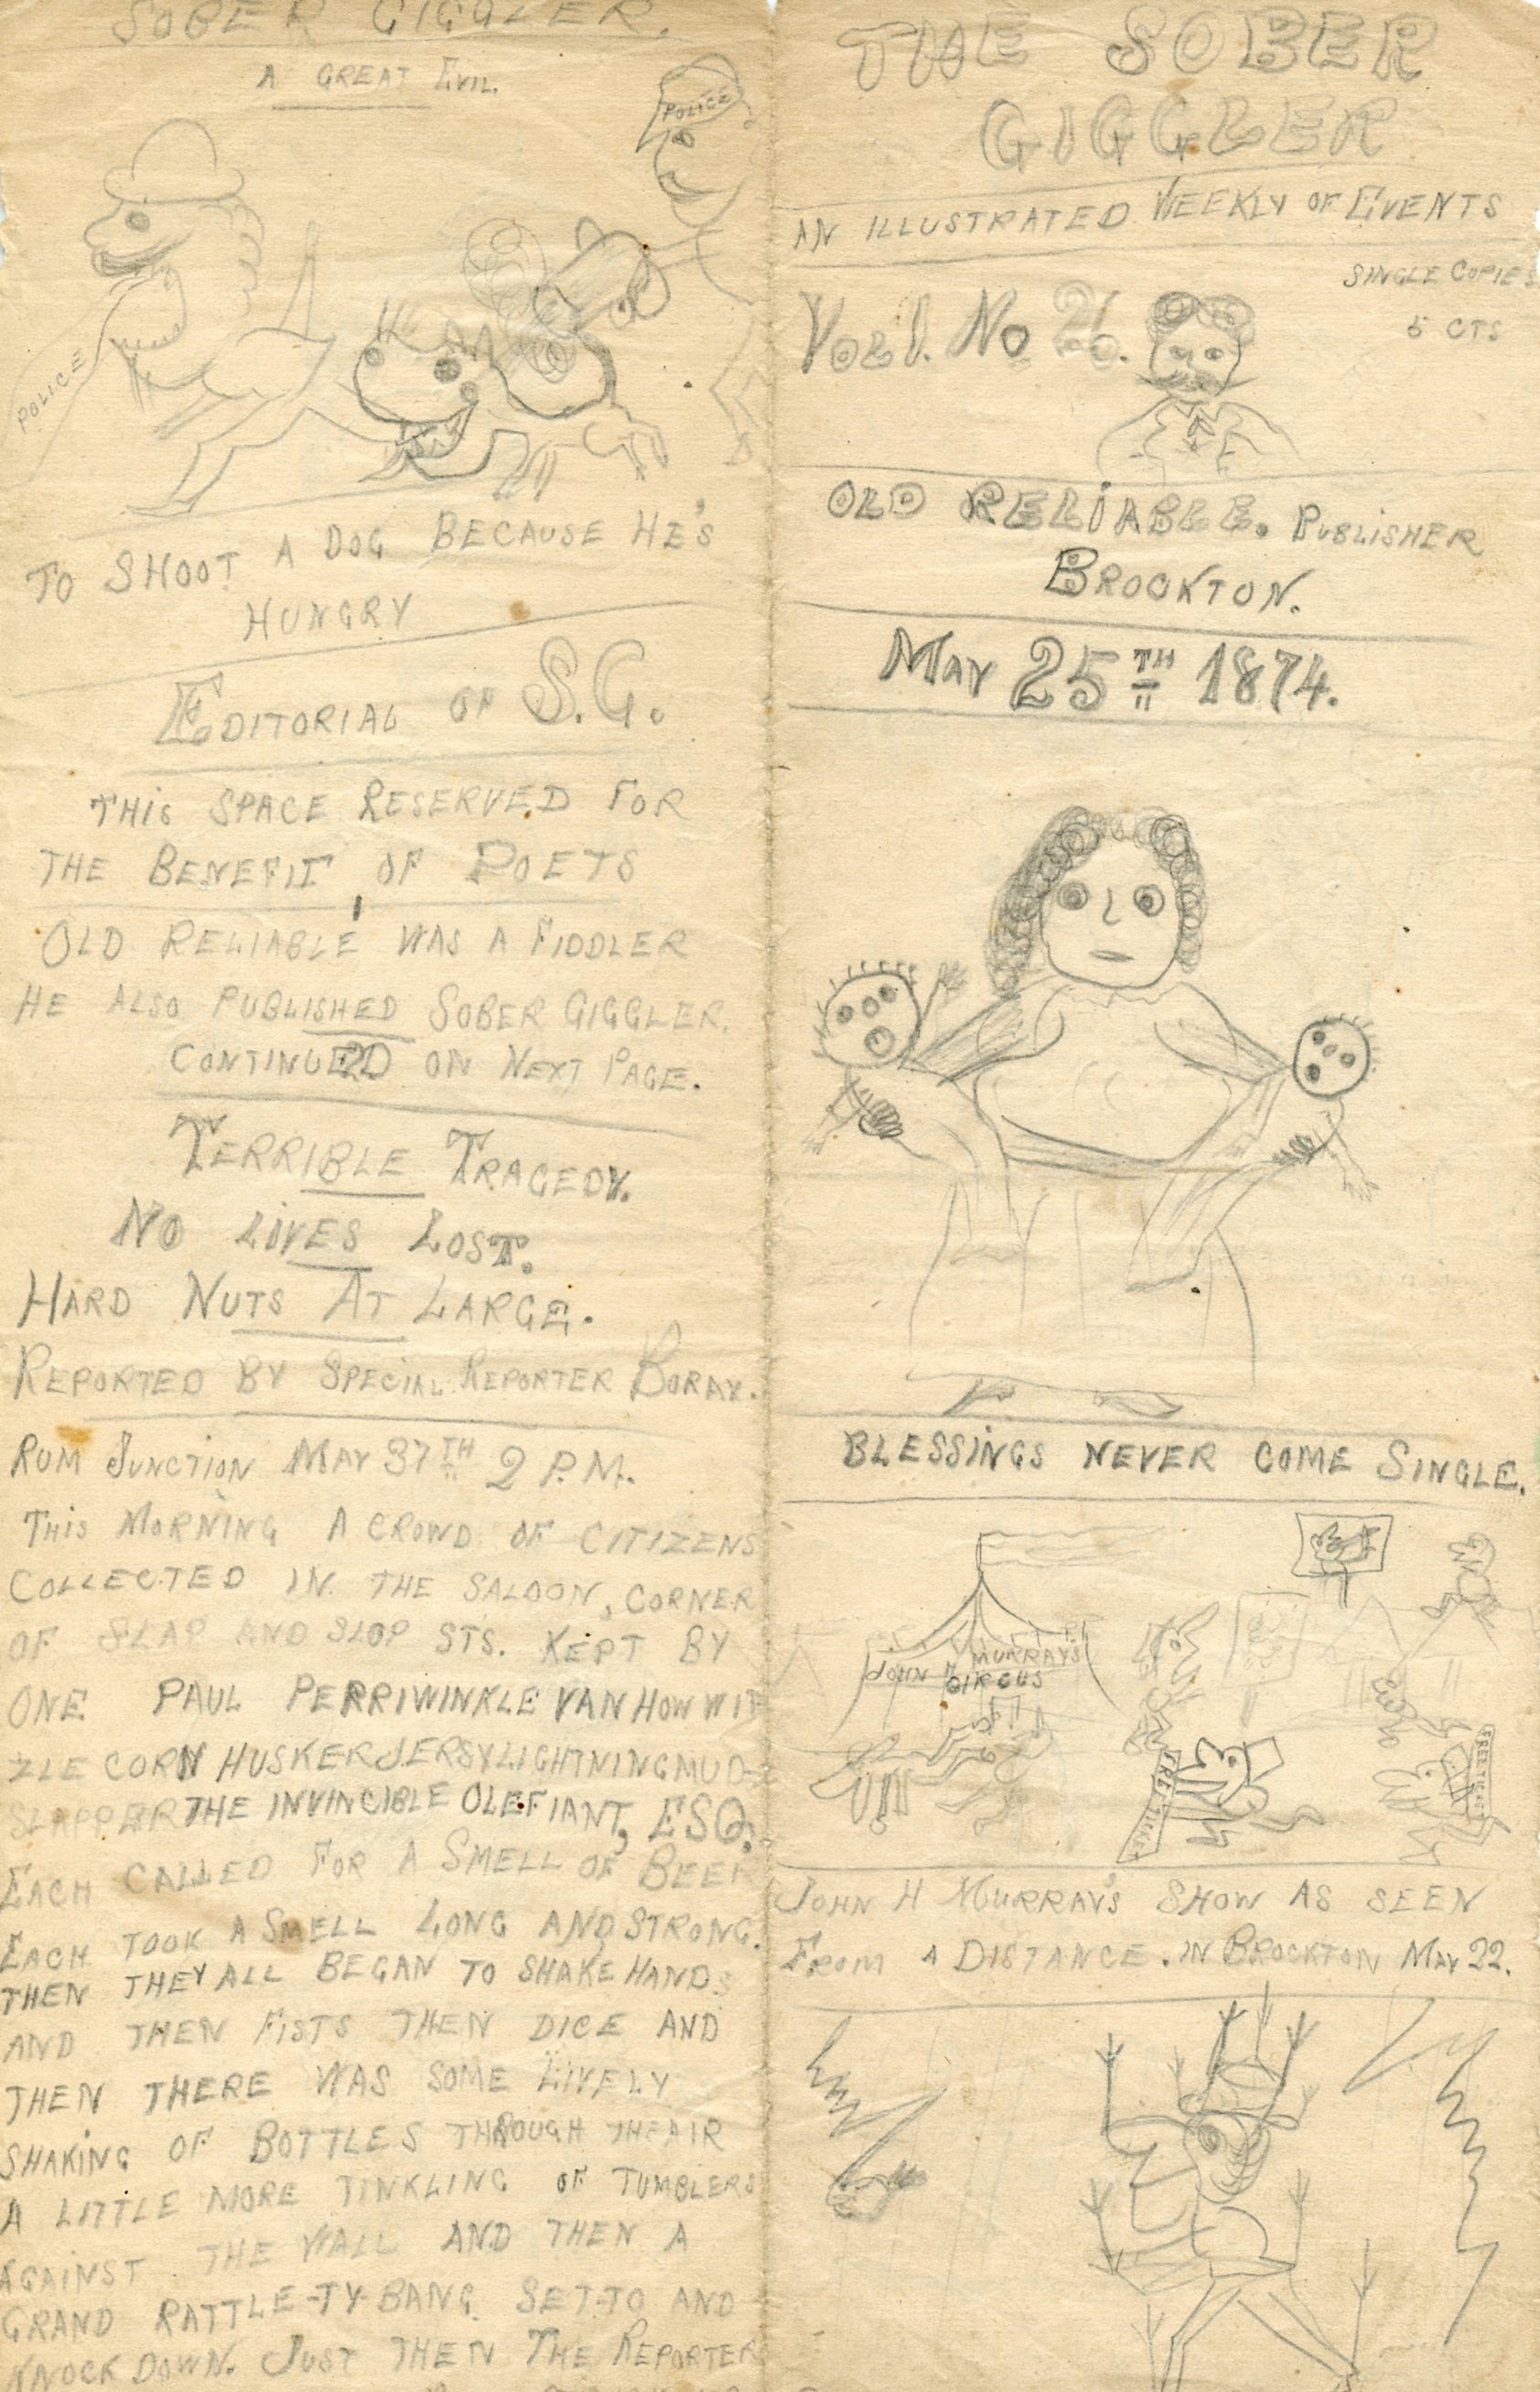 SOBER GIGGLER.
A GREAT EVIL.
POLICE
POLICE
TO SHOOT A DOG BECAUSE HE'S
HUNGRY
EDITORIAL OF S.G.
THIS SPACE RESERVED FOR
THE BENEFIT OF POETS
OLD RELIABLE WAS A FIDDLER
HE ALSO PUBLISHED SOBER GIGGLER.
CONTINUED ON NEXT PAGE.
TERRIBLE TRAGEDY.
NO LIVES LOST.
HARD NUTS AT LARGE.
REPORTED BY SPECIAL REPORTER BORAX.
RUM JUNCTION MAY 37TH 2 P.M.
THIS MORNING A CROWD OF CITIZENS
COLLECTED IN THE SALOON, CORNER
OF SLAP AND SLOP STS. KEPT BY
ONE PAUL PERRIWINKLE VAN HOW WIF
ZLE CORN HUSKER JERSY LIGHTNING MUD-
SLAPPER THE INVINCIBLE OLEFIANT, ESQ.
EACH CALLED FOR A SMELL OF BEER
EACH TOOK A SMELL LONG AND STRONG.
THEN THEY ALL BEGAN TO SHAKE HANDS
AND THEN FISTS THEN DICE AND
THEN THERE WAS SOME LIVELY
SHAKING OF BOTTLES THROUGH THE AIR
A LITTLE MORE TINKLING OF TUMBLERS
AGAINST THE WALL AND THEN A
GRAND RATTLE-TY-BANG SET-TO AND
KNOCK DOWN. JUST THEN THE REPORTER
THE SOBER
GIGGLER
AN ILLUSTRATED WEEKLY OF EVENTS
SINGLE COPIES
5 CTS
VOL 1. NO 26.
OLD RELIABLE. PUBLISHER
BROCKTON.
MAY 25TH 1874.
BLESSINGS NEVER COME SINGLE.
JOHN H MURRAY'S
CIRCUS
FREE TICKET
FREE TICKET
JOHN H MURRAY'S SHOW AS SEEN
FROM A DISTANCE. IN BROCKTON MAY 22.